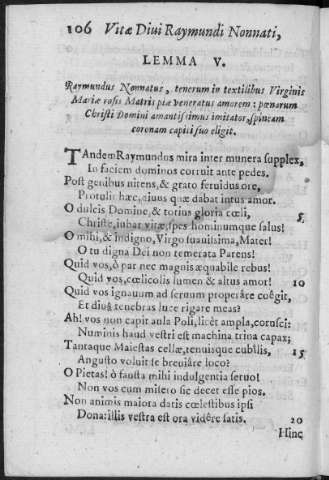 106 Vitæ Diui Raymundi Nonnati,
LEMMA V.
Raymundus Nonnatus, tenerum in textilibus Virginis
Mariæ rosis Matris piæ veneratus amorem: pœnarum
Christi Domini amantissimus imitator, spineam
coronam capiti suo eligit.
TAndem Raymundus mira inter munera supplex,
In faciem dominos corruit ante pedes.
Post genibus nitens, & grato feruidus ore,
Protulit hæc, niuus quæ dabat intus amor.
O dulcis Domine, & totius gloria cœli, 5
Christe, iubar vitæ, spes hominumque salus!
O mihi, & indigno, Virgo suauissima, Mater!
O tu digna Dei non temerata Parens!
Quid vos, ò par nec magnis æquabile rebus!
Quid vos, cœlicolis lumen & altus amor! 10
Quid vos ignauum ad seruum properâre coêgit,
Et diuâ tenebras luce rigare meas?
Ah! vos non capit aula Poli, licèt ampla, corusci:
Numinis haud vestri est machina trina capax;
Tantaque Maiestas cellæ, tenuisque cubilis, 15
Angusto voluit se breuiâre loco?
O Pietas! ò fausta mihi indulgentia seruo!
Non vos cum misero sic decet esse pios.
Non animis maiora datis cœlestibus ipsi
Dona: illis vestra est ora vidêre satis. 20
Hinc